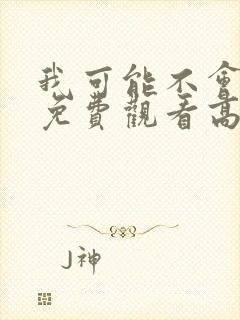 我可能不會
免費觀看高
J神